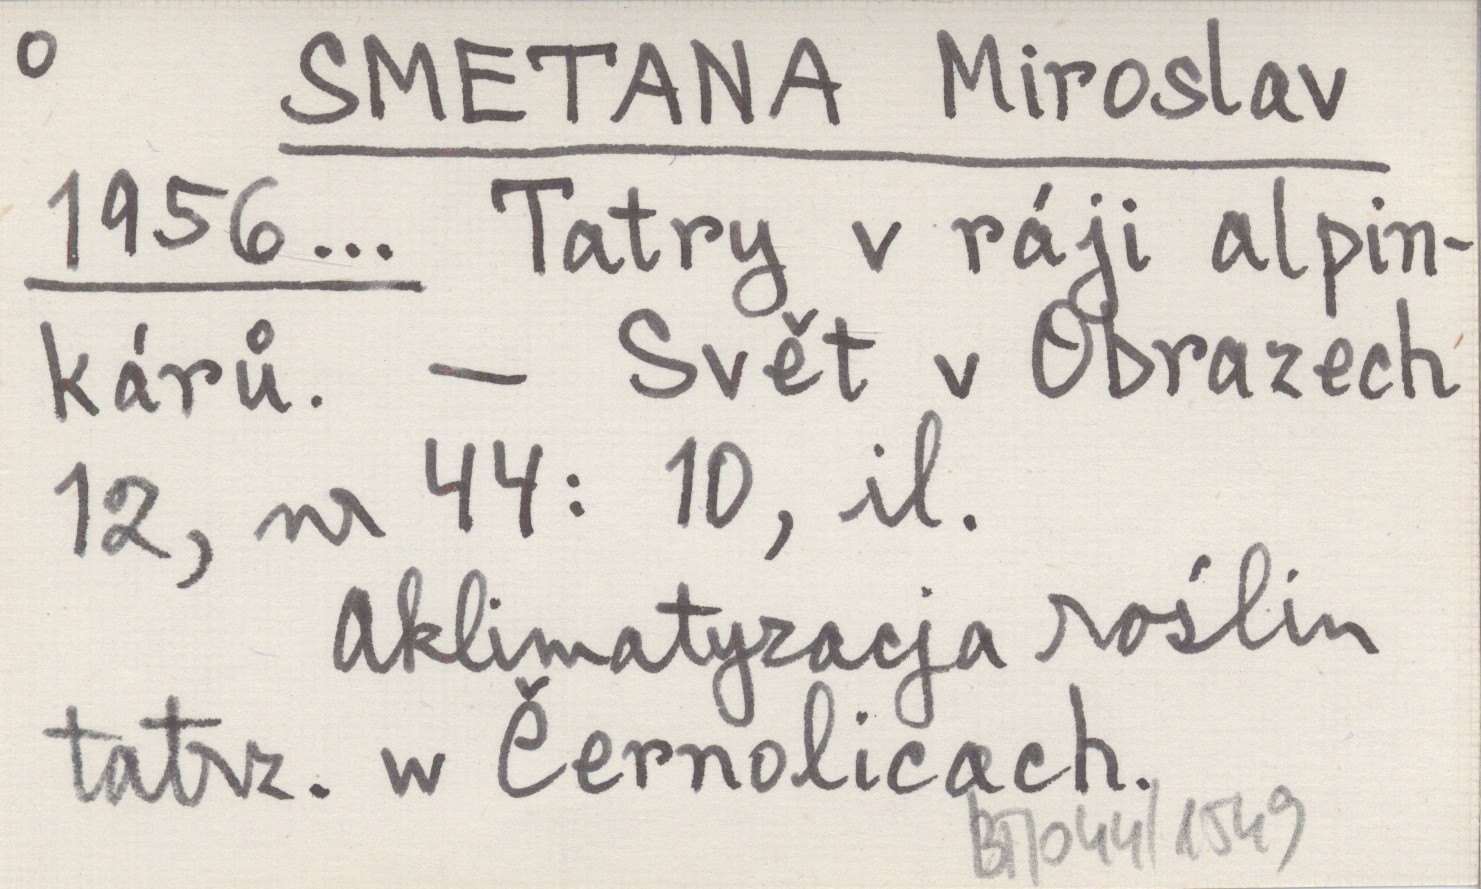 o SMETANA Miroslav
1956... Tatry v ráji alpin-
kárů. — Svět v Obrazech
12, nr 44: 10, il.
Aklimatyzacja roślin
tatrz. w Černolicach.
BT/044/1549